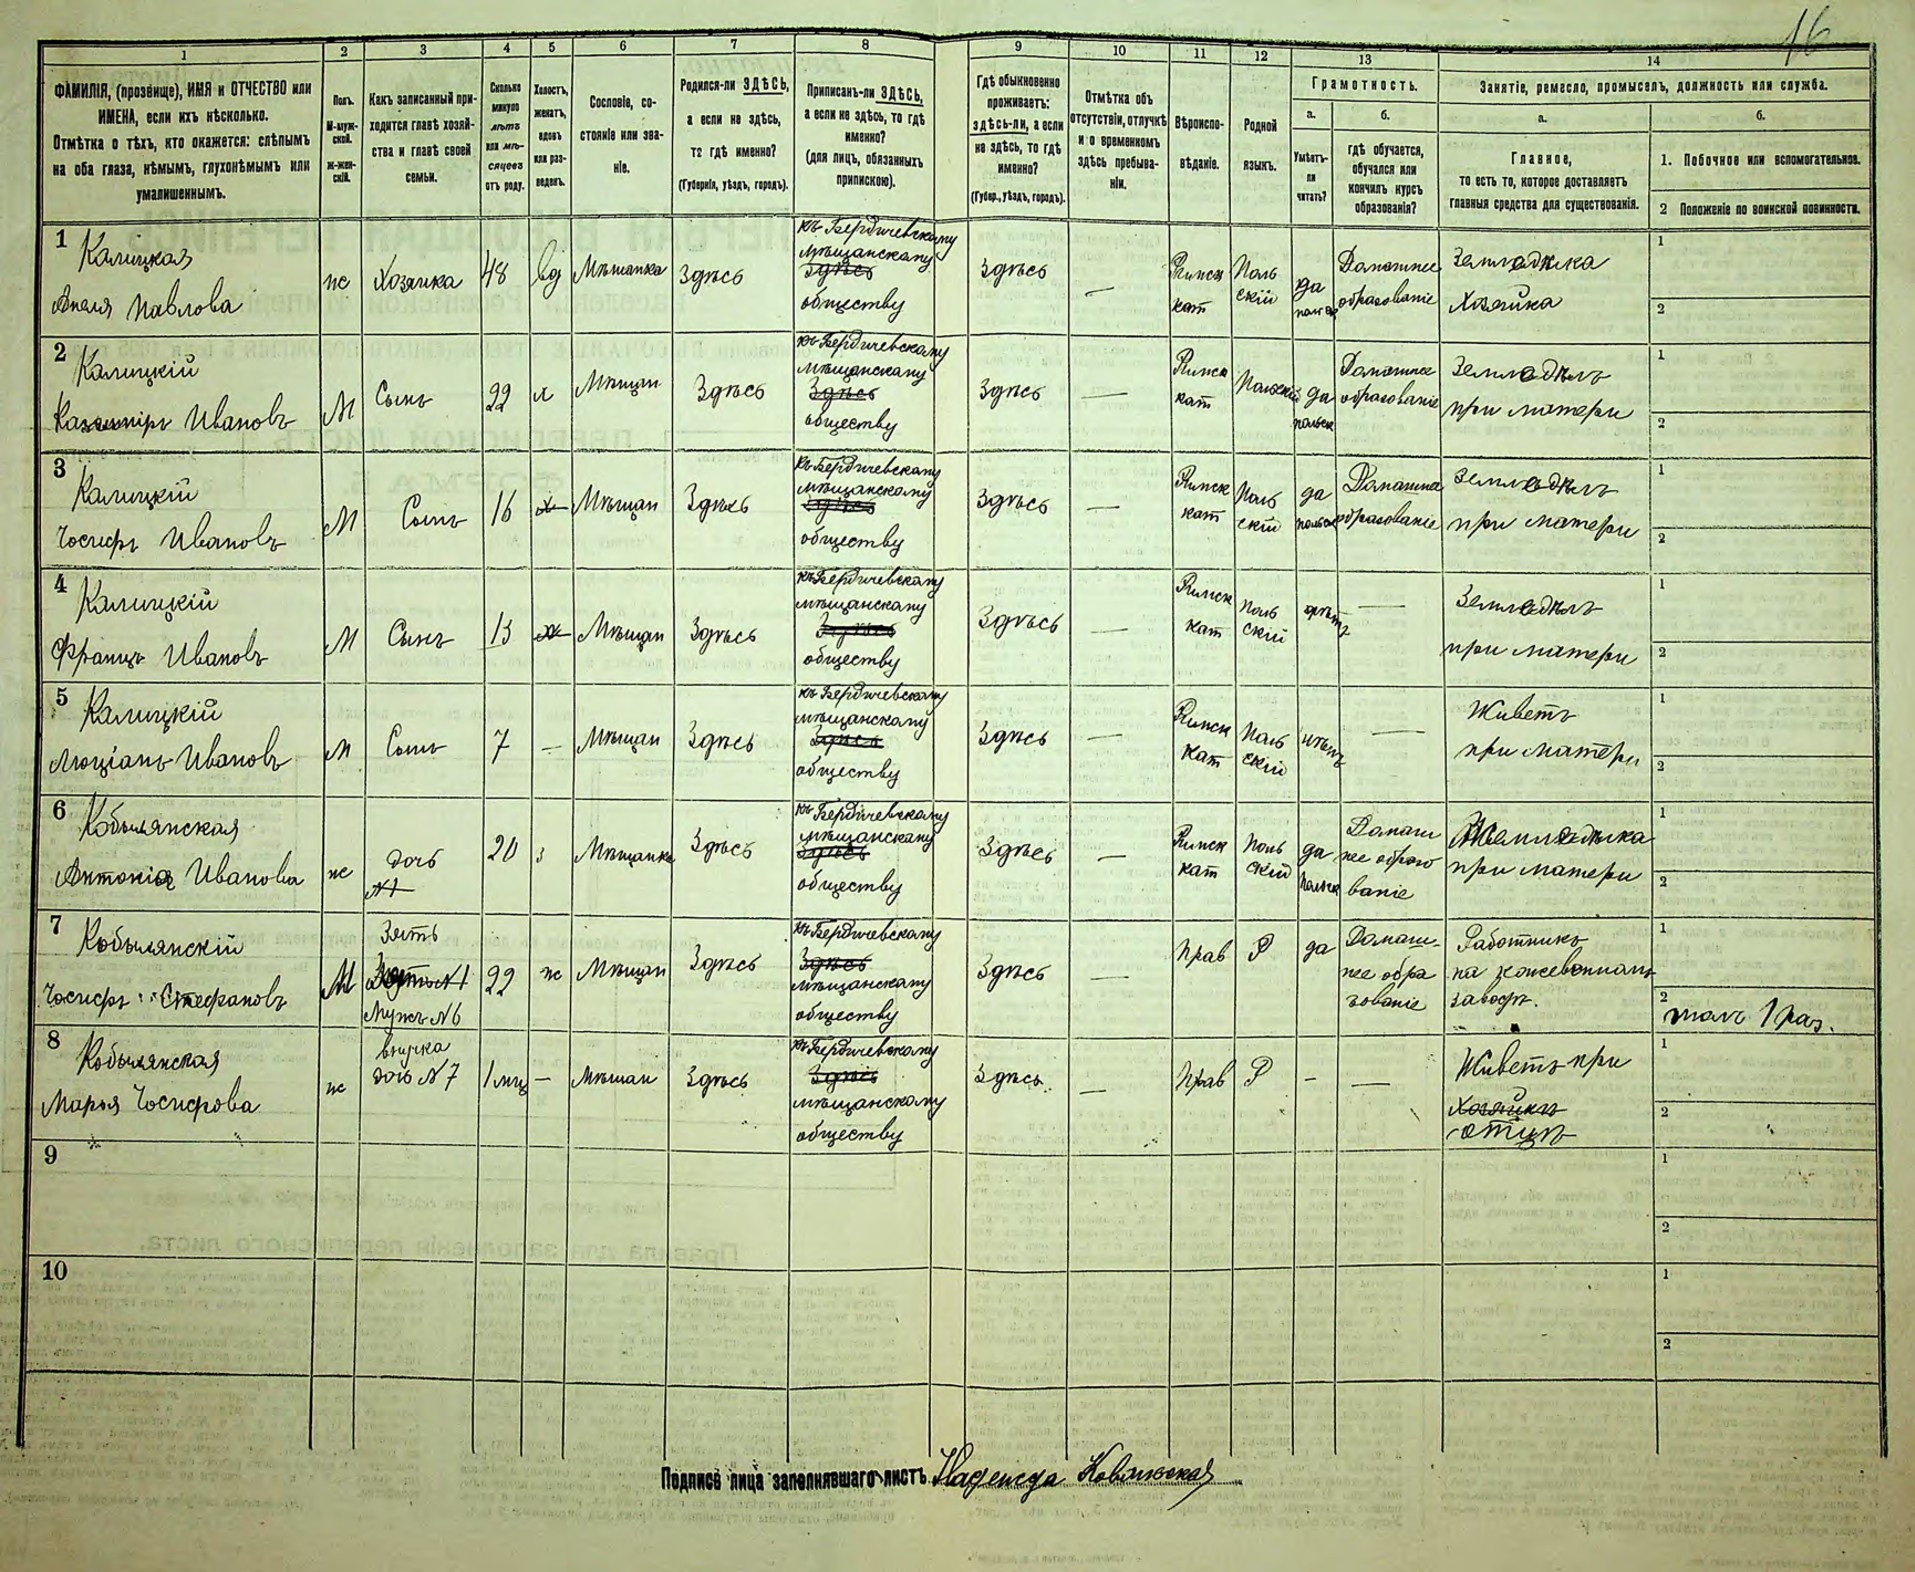 16
1 2 3 4 5 6 7 8 9 10 11 12 13 14
ФАМИЛІЯ, (прозвище), ИМЯ и ОТЧЕСТВО или
ИМЕНА, если ихъ нѣсколько.
Отмѣтка о тѣхъ, кто окажется: слѣпымъ
на оба глаза, нѣмымъ, глухонѣмымъ или
умалишеннымъ.
Полъ.
М-муж-
ской.
ж-жен-
скій.
Какъ записанный при-
ходится главѣ хозяй-
ства и главѣ своей
семьи.
Сколько
минуло
лѣтъ
или мѣ-
сяцевъ
отъ роду.
Холостъ,
женатъ,
вдовъ
или раз-
веденъ.
Сословіе, со-
стояніе или зва-
ніе.
Родился-ли ЗДѢСЬ,
а если не здѣсь,
то гдѣ именно?
(Губернія, уѣздъ, городъ).
Приписанъ-ли ЗДѢСЬ,
а если не здѣсь, то гдѣ
именно?
(для лицъ, обязанныхъ
припискою).
Гдѣ обыкновенно
проживаетъ:
здѣсь-ли, а если
не здѣсь, то гдѣ
именно?
(Губер., уѣздъ, городъ).
Отмѣтка объ
отсутствіи, отлучкѣ
и о временномъ
здѣсь пребыва-
ніи.
Вѣроиспо-
вѣданіе.
Родной
языкъ.
Грамотность.
а.
Умѣетъ-
ли
читать?
б.
гдѣ обучается,
обучался или
кончилъ курсъ
образованія?
Занятіе, ремесло, промыселъ, должность или служба.
а.
Главное,
то есть то, которое доставляетъ
главныя средства для существованія.
б.
1. Побочное или вспомогательное.
2 Положеніе по воинской повинности.
1 Калицкая
Анеля Павлова
ж
Хозяйка
48
вд
Мѣщанка
Здѣсь
къ Бердичевскому
мѣщанскому
Здѣсь
обществу
Здѣсь
—
Римск
кат
Поль
скій
да
польск
Домашнее
образованіе
Земледѣлка
Хозяйка
1
2
2 Калицкій
Казимиръ Ивановъ
М
Сынъ
22
х
Мѣщан
Здѣсь
къ Бердичевскому
мѣщанскому
Здѣсь
обществу
Здѣсь
—
Римск
кат
Польскій
да
польск
Домашнее
образованіе
Земледѣлъ
при матери
1
2
3 Калицкій
Іосифъ Ивановъ
М
Сынъ
16
х
Мѣщан
Здѣсь
къ Бердичевскому
мѣщанскому
Здѣсь
обществу
Здѣсь
—
Римск
кат
Поль
скій
да
польск
Домашнее
образованіе
Земледѣлъ
при матери
1
2
4 Калицкій
Францъ Ивановъ
М
Сынъ
13
х
Мѣщан
Здѣсь
къ Бердичевскому
мѣщанскому
Здѣсь
обществу
Здѣсь
—
Римск
кат
Поль
скій
нѣтъ
—
Земледѣлъ
при матери
1
2
5 Калицкій
Люціанъ Ивановъ
М
Сынъ
7
—
Мѣщан
Здѣсь
къ Бердичевскому
мѣщанскому
Здѣсь
обществу
Здѣсь
—
Римск
кат
Поль
скій
нѣтъ
—
Живетъ
при матери
1
2
6 Кобылянская
Антонія Иванова
ж
дочь
№1
20
з
Мѣщанка
Здѣсь
къ Бердичевскому
мѣщанскому
Здѣсь
обществу
Здѣсь
—
Римск
кат
Поль
скій
да
польск
Домаш
нее образо
ваніе
Земледѣлка
при матери
1
2
7 Кобылянскій
Іосифъ Стефановъ
М
Зять
№1
Мужъ №6
22
ж
Мѣщан
Здѣсь
къ Бердичевскому
Здѣсь
мѣщанскому
обществу
Здѣсь
—
Прав
Р
да
Домаш-
нее обра
зованіе
Работникъ
на кожевенномъ
заводѣ.
1
2
1 раз.
8 Кобылянская
Марья Іосифова
ж
внучка
дочь №7
1 мѣц
—
Мѣщан
Здѣсь
къ Бердичевскому
Здѣсь
мѣщанскому
обществу
Здѣсь
—
Прав
Р
—
—
Живетъ при
Хозяйкѣ
отцѣ
1
2
9
1
2
10
1
2
Подпись лица заполнявшаго листъ Надежда